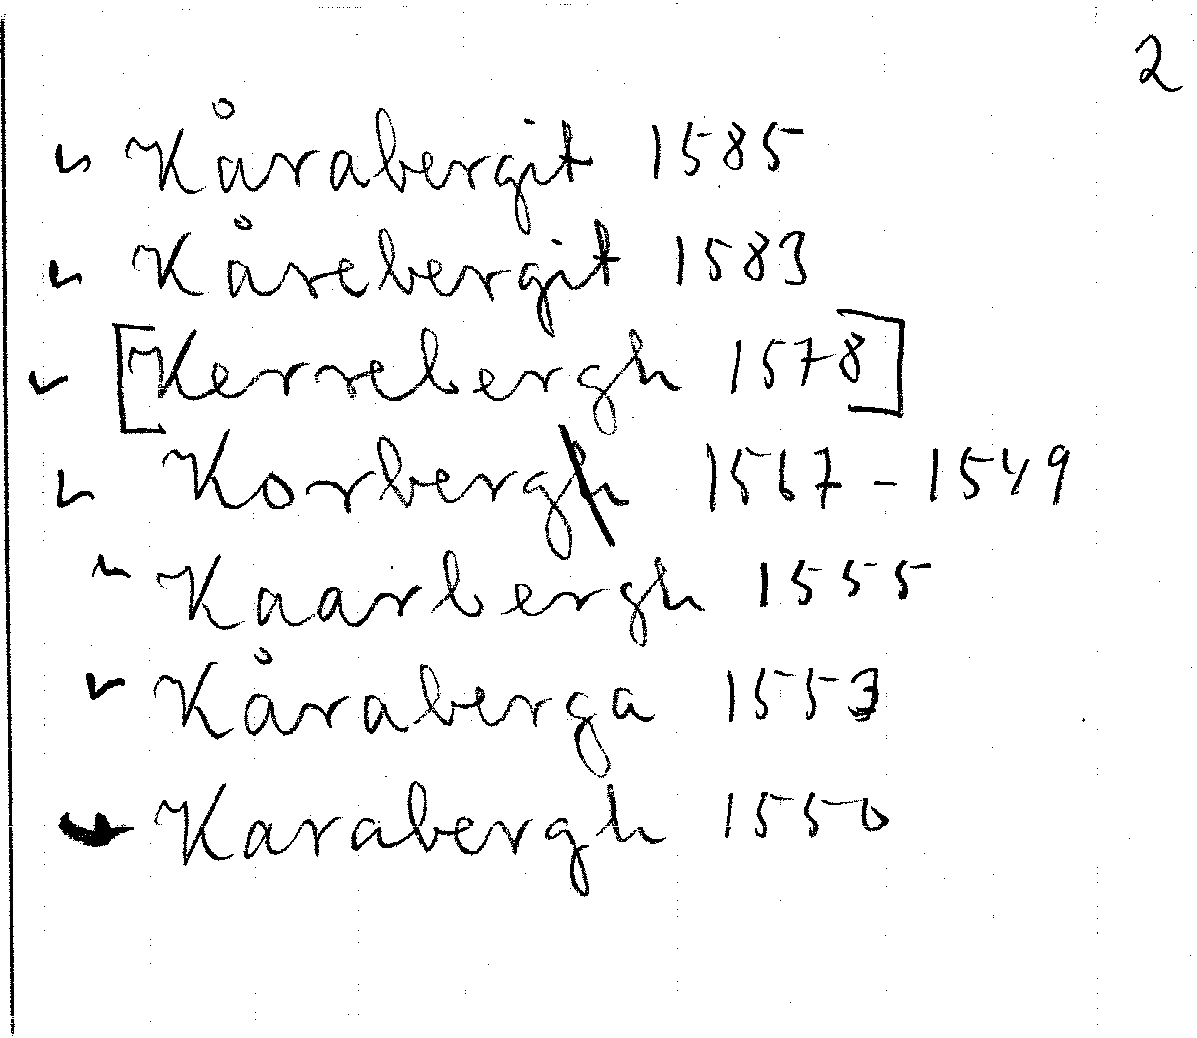 2
Kårabergit 1585
Kårebergit 1583
[Kerrebergh 1578]
Korbergh 1567 - 1549
Kaarbergh 1555
Kåraberga 1553
Karabergh 1550